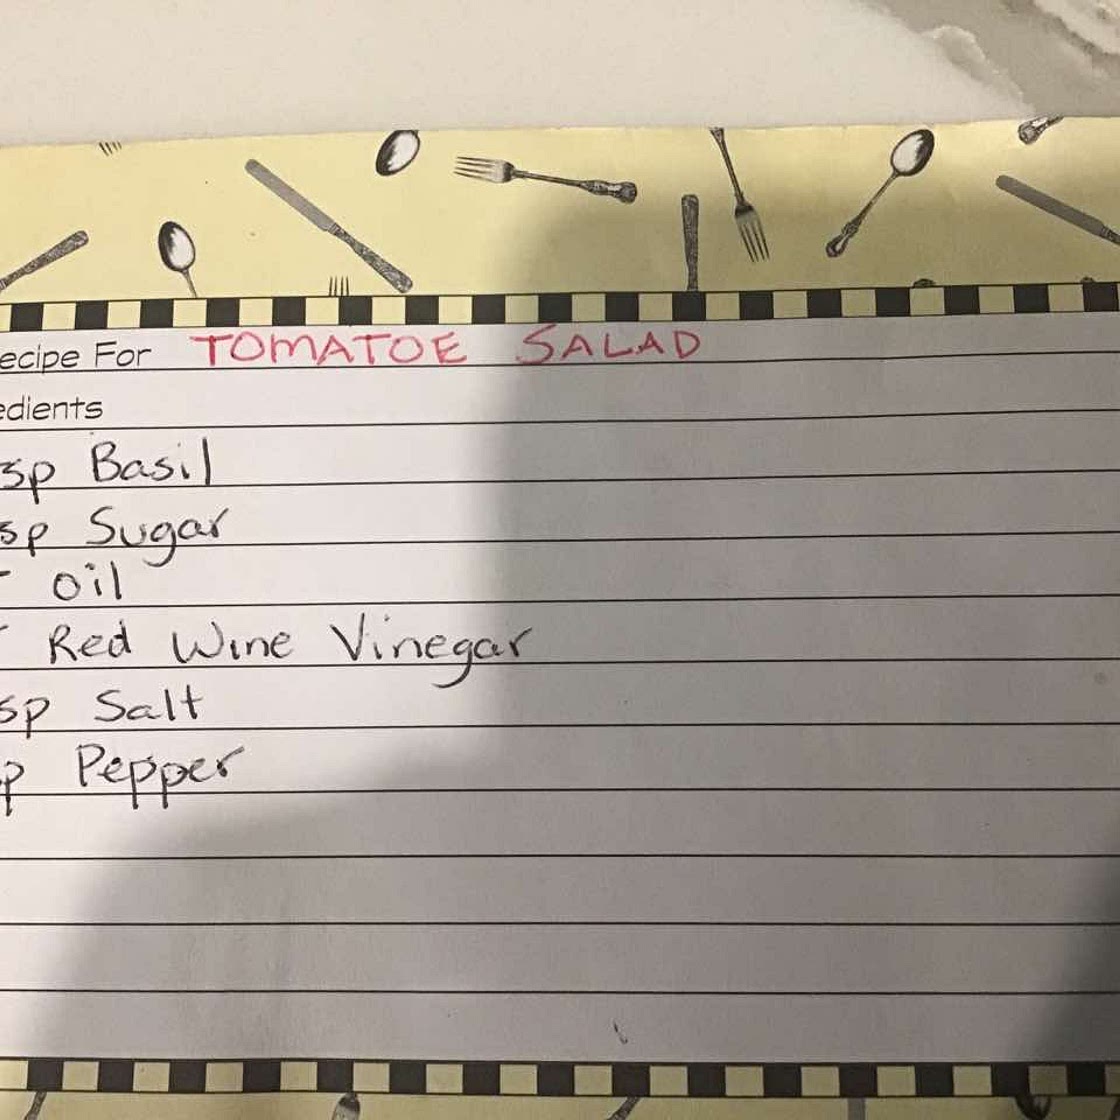 ecipe For TOMATOE SALAD
edients
sp Basil
sp Sugar
oil
Red Wine Vinegar
sp Salt
p Pepper